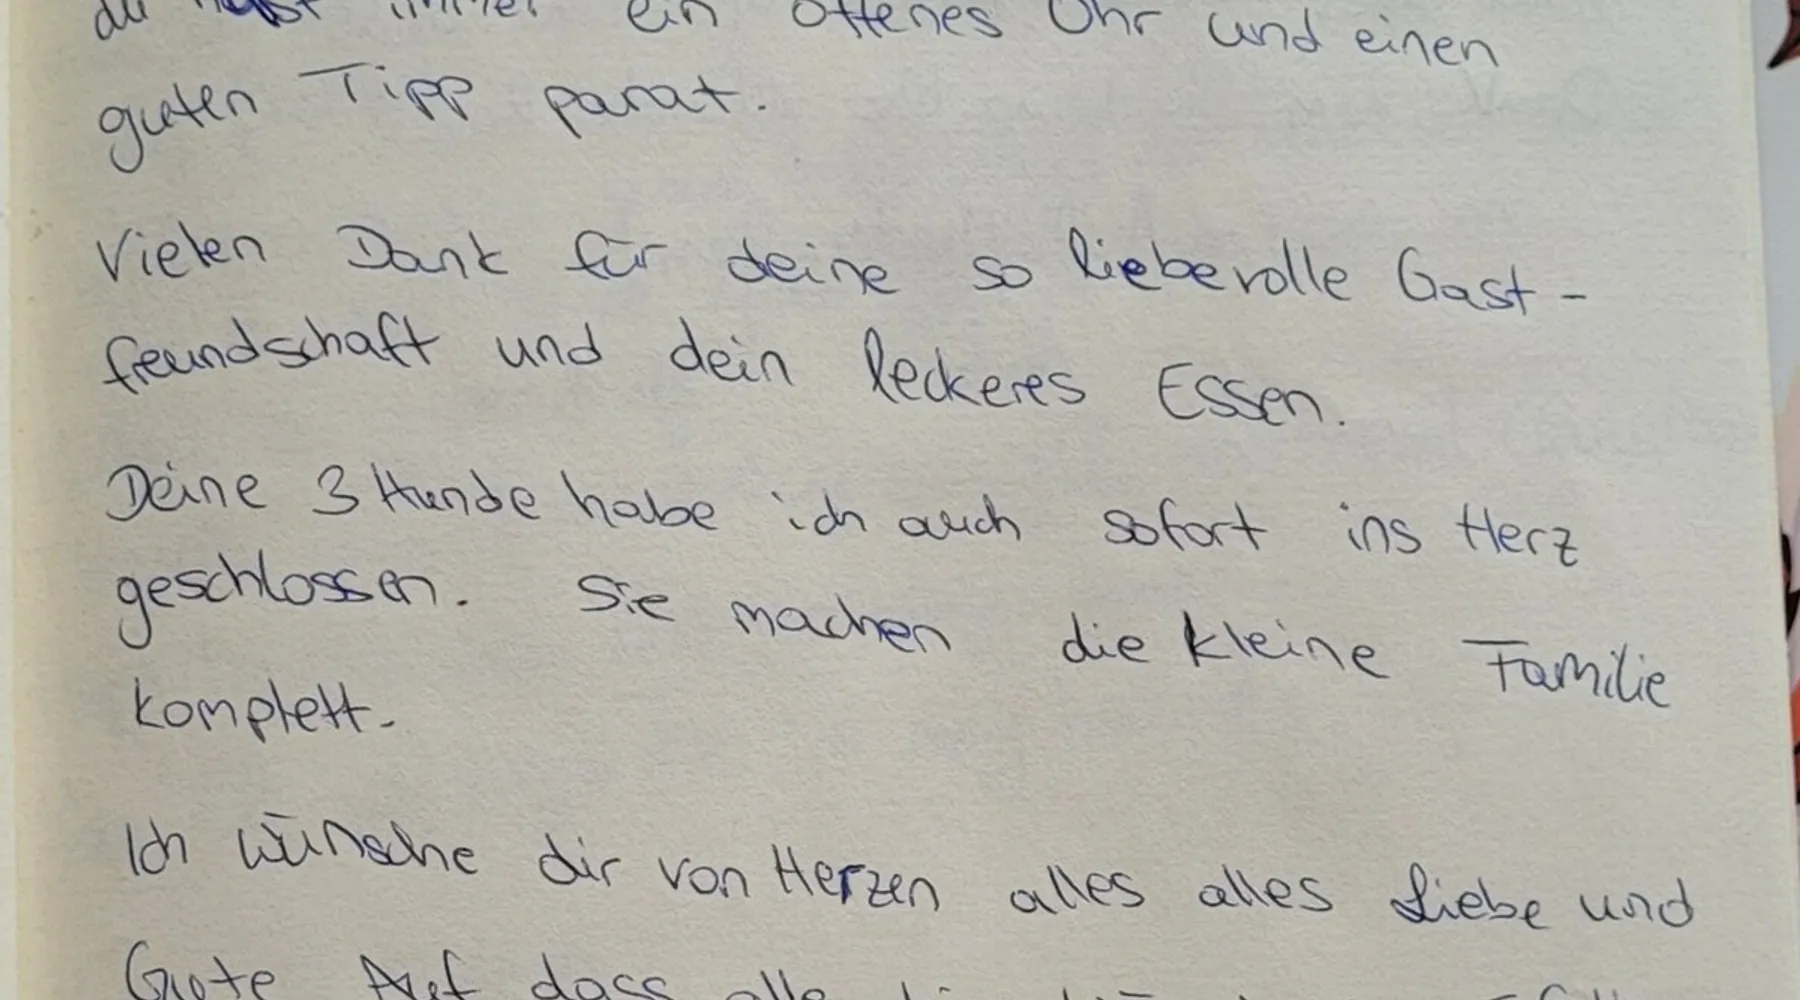 du hast immer ein offenes Ohr und einen
guten Tipp parat.
Vielen Dank für deine so liebevolle Gast-
freundschaft und dein leckeres Essen.
Deine 3 Hunde habe ich auch sofort ins Herz
geschlossen. Sie machen die kleine Familie
komplett.
Ich wünsche dir von Herzen alles alles Liebe und
Gute Auf dass alle